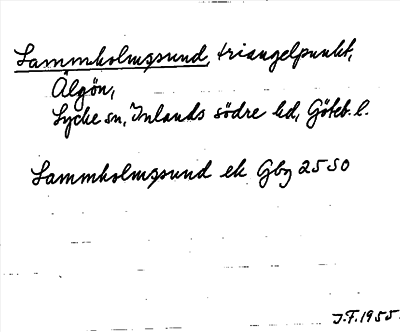 Lammholmssund, triangelpunkt,
Älgön,
Lycke sn, Inlands södre hd, Göteb. l.
Lammholmssund ek Gbg 25 SO
J.F. 1955.